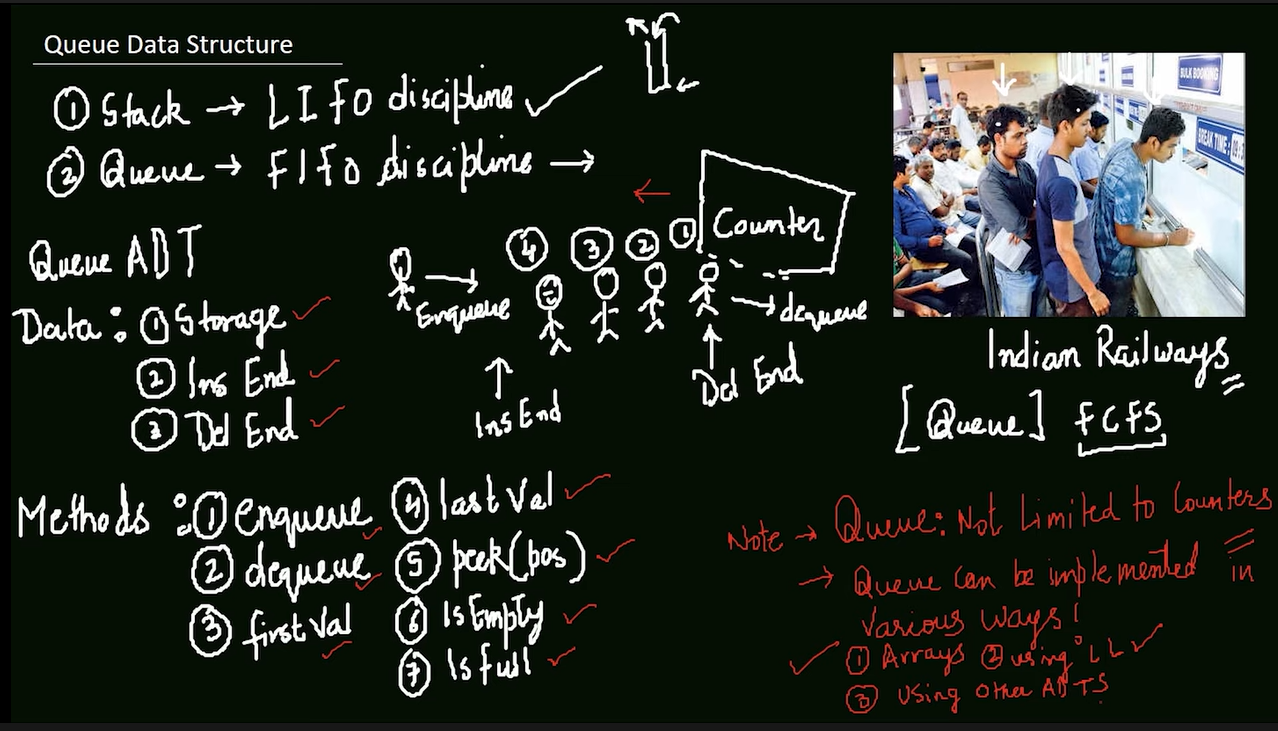 Queue Data Structure
① Stack → LIFO discipline ✓
② Queue → FIFO discipline →
Queue ADT
Data : ① Storage ✓
② Ins End ✓
③ Del End ✓
④ ③ ② ① Counter
Enqueue
dequeue
Ins End
Del End
BULK BOOKING
BREAK TIME :
Indian Railways
[Queue] FCFS
Methods : ① enqueue ✓
② dequeue ✓
③ firstVal ✓
④ lastVal ✓
⑤ peek(pos) ✓
⑥ IsEmpty ✓
⑦ IsFull ✓
Note → Queue: Not Limited to Counters
→ Queue can be implemented in
various ways!
✓ ① Arrays ② using LL ✓
③ Using Other ADTS